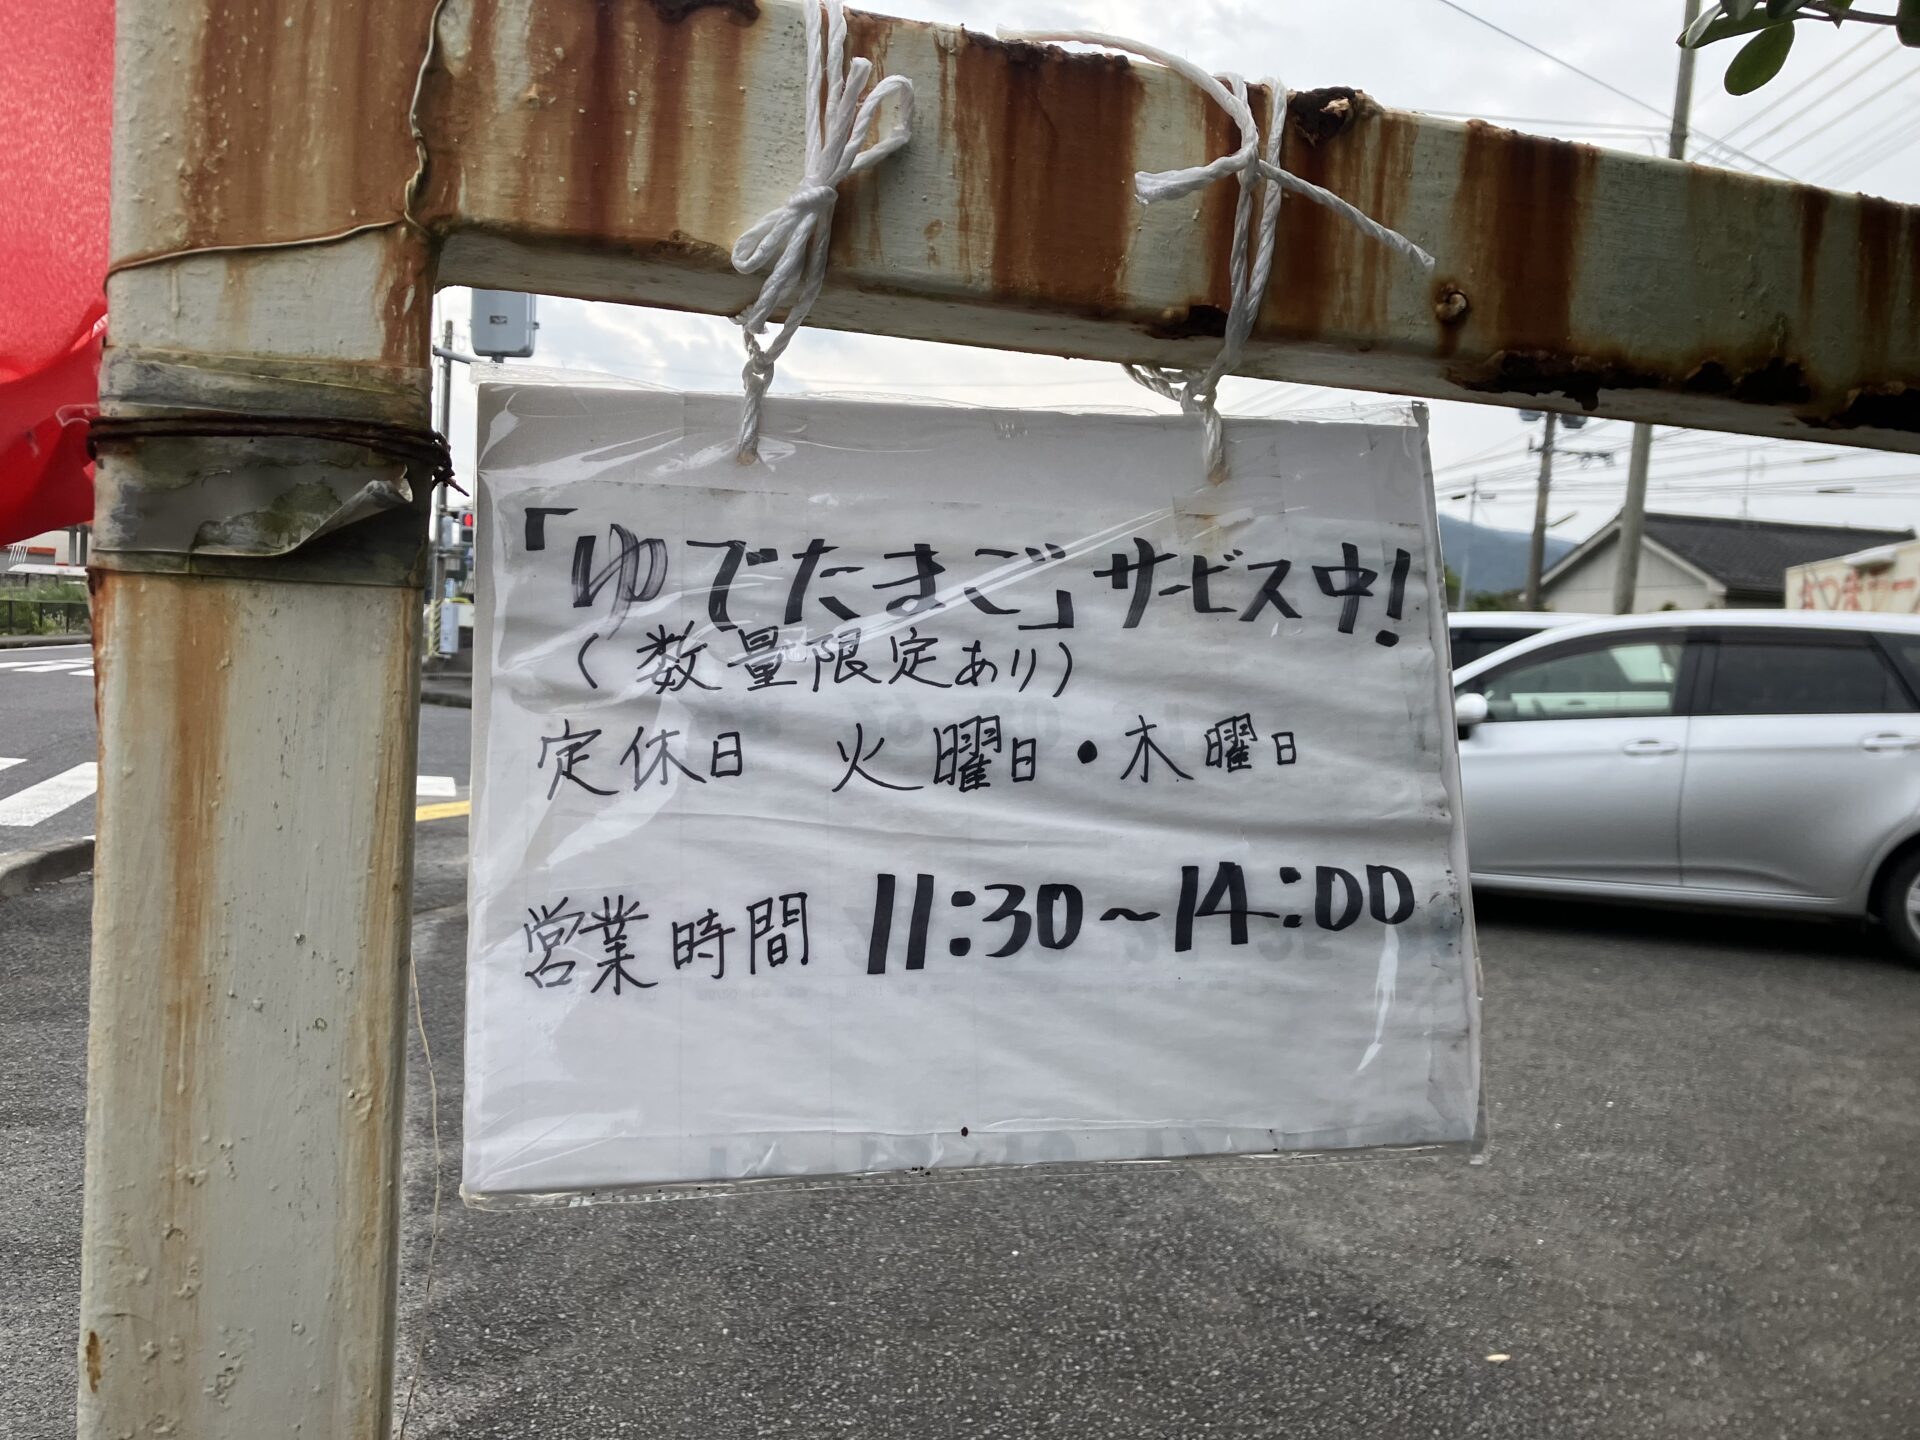 「ゆでたまご」サービス中!
(数量限定あり)
定休日 火曜日・木曜日
営業時間 11:30~14:00